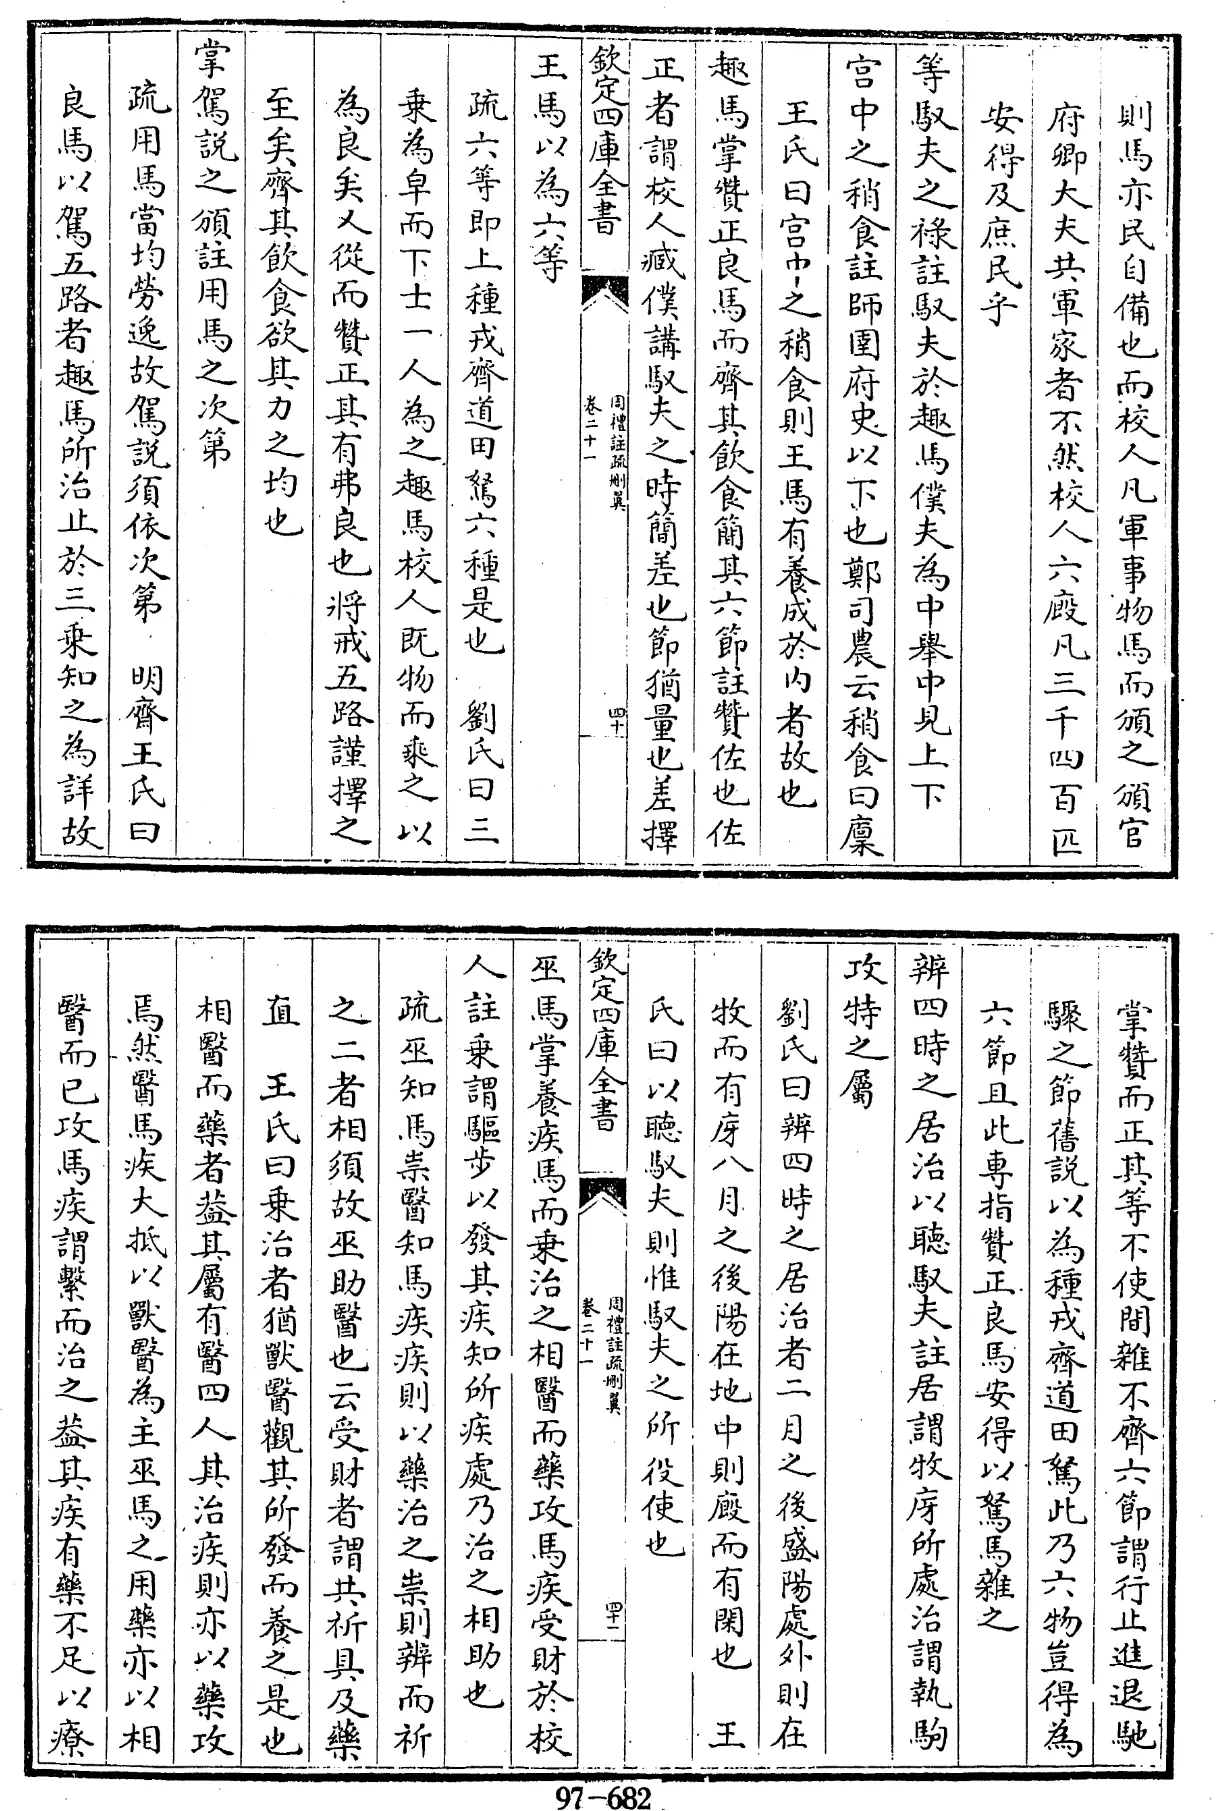 則馬亦民自備也而校人凡軍事物馬而頒之頒官
府卿大夫共軍家者不然校人六廄凡三千四百匹
安得及庶民乎
等馭夫之祿註馭夫於趣馬僕夫為中舉中見上下
宮中之稍食註師圉府史以下也鄭司農云稍食曰廩
王氏曰宮中之稍食則王馬有養成於内者故也
趣馬掌贊正良馬而齊其飲食簡其六節註贊佐也佐
正者謂校人臧僕講馭夫之時簡差也節猶量也差擇
欽定四庫全書
周禮註疏刪翼
卷二十一
四十
王馬以為六等
疏六等即上種戎齊道田駑六種是也 劉氏曰三
乗為皁而下士一人為之趣馬校人既物而乗之以
為良矣乂從而贊正其有弗良也將戒五路謹擇之
至矣齊其飲食欲其力之均也
掌駕說之頒註用馬之次第
疏用馬當均勞逸故駕說須依次第 明齋王氏曰
良馬以駕五路者趣馬所治止於三乗知之為詳故
掌贊而正其等不使間雜不齊六節謂行止進退馳
驟之節舊說以為種戎齊道田駑此乃六物豈得為
六節且此專指贊正良馬安得以駑馬雜之
辨四時之居治以聽馭夫註居謂牧庌所處治謂執駒
攻特之屬
劉氏曰辨四時之居治者二月之後盛陽處外則在
牧而有庌八月之後陽在地中則廄而有閑也 王
氏曰以聽馭夫則惟馭夫之所役使也
欽定四庫全書
周禮註疏刪翼
卷二十一
四十一
巫馬掌養疾馬而乗治之相醫而藥攻馬疾受財於校
人註乗謂驅步以發其疾知所疾處乃治之相助也
疏巫知馬祟醫知馬疾疾則以藥治之祟則辨而祈
之二者相須故巫助醫也云受財者謂共祈具及藥
直 王氏曰乗治者猶獸醫觀其所發而養之是也
相醫而藥者葢其屬有醫四人其治疾則亦以藥攻
焉然醫馬疾大抵以獸醫為主巫馬之用藥亦以相
醫而已攻馬疾謂繫而治之葢其疾有藥不足以療
97-682